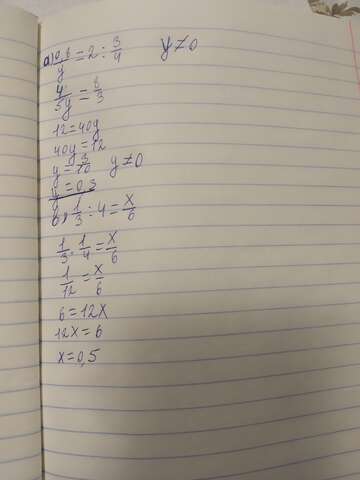 а) 0,8/y = 2 : 3/4 y ≠ 0
4/5y = 8/3
12 = 40y
40y = 12
y = 3/10 y ≠ 0
y = 0,3
в) 1/3 : 4 = x/6
1/3 · 1/4 = x/6
1/12 = x/6
6 = 12x
12x = 6
x = 0,5